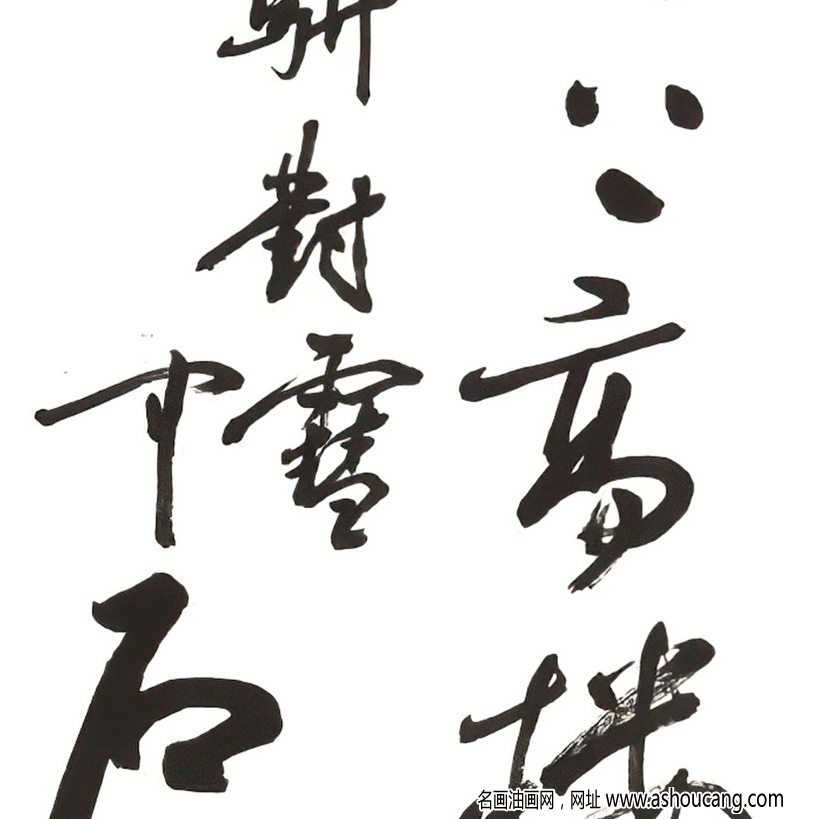 上高樓
駢對雪
中石
名画油画网，网址 www.ashoucang.com